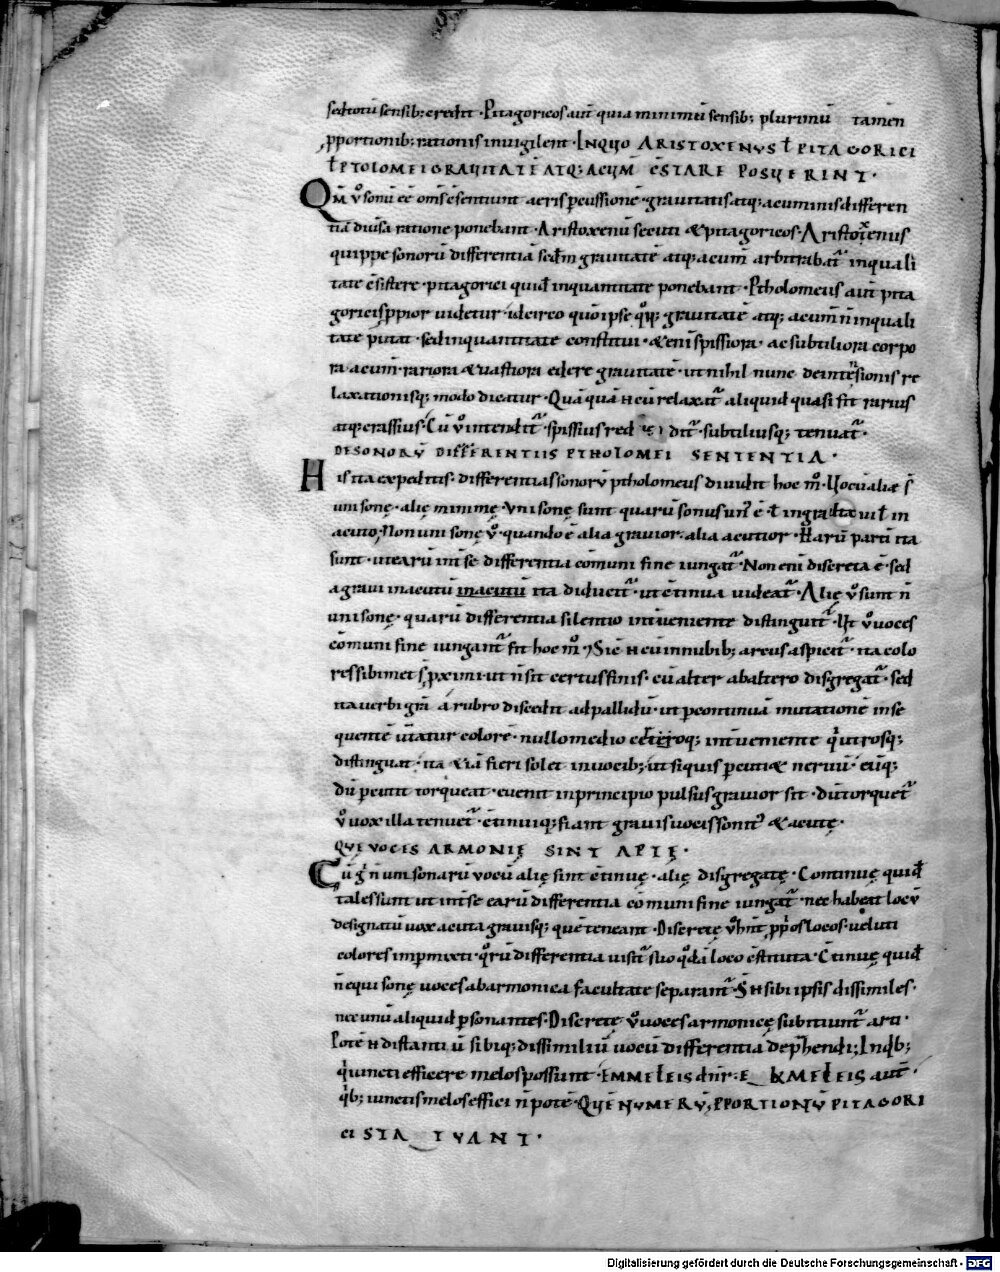 sed totū sensib; credit · Pitagoricos aut̄ quia minimū sensib; plurimū tamen
pportionib; rationis inuigilent · IN QUO ARISTOXENUS ł PITAGORICI
ł PTOLOMEI GRAUITATĒ ATQ; ACUM̄ C̄STARE POSUERINT ·
Qm̄ ů sonū eē om̄s c̄sentiunt aeris pcussionē · grauitatis atq; acuminis differen
tiā diuisa ratione ponebant · Aristoxenū secuti & pitagoricos · Aristoxenus
quippe sonorū differentiā scd̄m grauitatē atq; acum̄ arbitrabat̄ in quali
tate c̄sistere · pitagorici quid̄ in quantitate ponebant · Ptholomeus aut̄ pita
goricis ppior uidetur · idcirco quō ipse q̊q; grauitatē atq; acum̄ n̄ in quali
tate putat · sed in quantitate constitui · & eni spissiora · ac subtiliora corpo
ra acum̄ · rariora & uastiora edere grauitatē · ut nihil nunc de intensionis re
laxationisq; modo dicatur · Quā quā HCU relaxat̄ aliquid quasi fit rarius
atq; crassius · Cū ů intendit̄ · spissius red di dit̄ · subtiliusq; tenuat̄ ·
DE SONORŪ DIFFERENTIIS PTHOLOMEI SENTENTIA ·
His ita expeditis · differentias sonorū ptholomeus diuidit hoc m̊ · Uocū alię s̄
unisonę · alię minimę · Unisonę sunt quarū sonus un᷒ ē ł in grauitate uł in
acuto · Non unisonę ů · quando ē alia grauior · alia acutior · Harū parti ita
sunt · ut earū int̄ se differentia cōmuni fine iungat̄ · Non eni discreta ē · sed
a graui in acutū in acutū ita diducit̄ · ut c̄tinua uideat̄ · Alię ů sunt n̄
unisonę · quarū differentia silentio int̄ueniente distinguit̄ · Ut ů uoces
cōmuni fine iungant̄ fit hoc m̊ · Sic HCU in nubib; arcus aspicit̄ · ita colo
res sibimet s̄ pximi · ut n̄ sit certus finis · cū alter ab altero disgregat̄ · sed
ita uerbi grā a rubro discedit ad pallidū · ut p continuā mutationē in se
quentē ūtatur colorē · nullo medio ceteroq; int̄ueniente q̇ utrosq;
distinguat · ita & iā fieri solet in uocib; ut si quis pcutiat neruū · eūq;
dū pcutit torqueat · euenit in principio pulsus grauior sit · dū torquet̄
ů uox illa tenuet̄ · c̄tinuiq; fiant grauis uocis sonit᷒ & acutę ·
QUĘ UOCES ARMONIĘ SINT APTĘ ·
Cū ġ n̄ unisonarū uocū alię sint c̄tinuę · alię disgregatę · Continuę quid̄
tales sunt ut int̄ se earū differentia cōmuni fine iungat̄ · nec habeat locū
designatū uox acuta grauisq; quē teneant · Discretę ů hn̄t pp̊os locos · ueluti
colores impmixti · q̊rū differentia uisit̄ suo q̊dā loco c̄stituta · C̄tinuę quid̄
n̄ equisonę uoces ab armonica facultate separant̄ · Sn̄ sibi ipsis dissimiles ·
nec unū aliquid psonantes · Discretę ů uoces armonicę subitiunt̄ arti ·
Potē n̄ distanti ū sibiq; dissimiliū uocū differentia dephendi; In q̄b;
q̇ iuncti efficere melos possunt · EMMELEIS dn̄r · EKMELEIS aut̄ ·
q̇b; iunctis melos effici n̄ potē · QUĘ NUMERŪ PPORTIONŪ PITAGORI
ci STATUANT ·
Digitalisierung gefördert durch die Deutsche Forschungsgemeinschaft - DFG